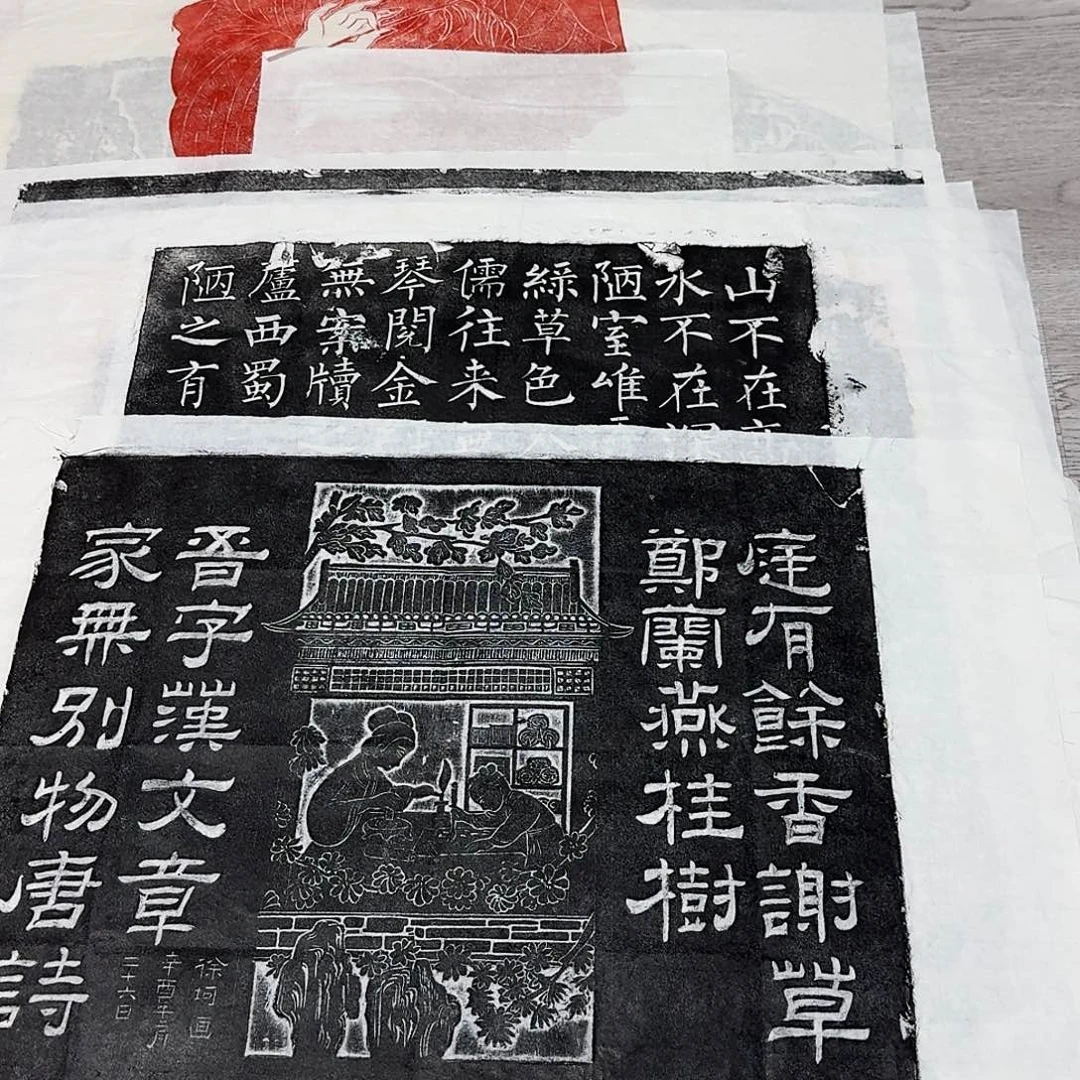 山不在
水不在
陋室唯
綠草色
儒往来
琴閱金
無案牘
廬西蜀
陋之有
庭有餘香謝草
鄭蘭燕桂樹
家無別物唐詩
晉字漢文章
徐坷画
辛酉年六月
二十六日